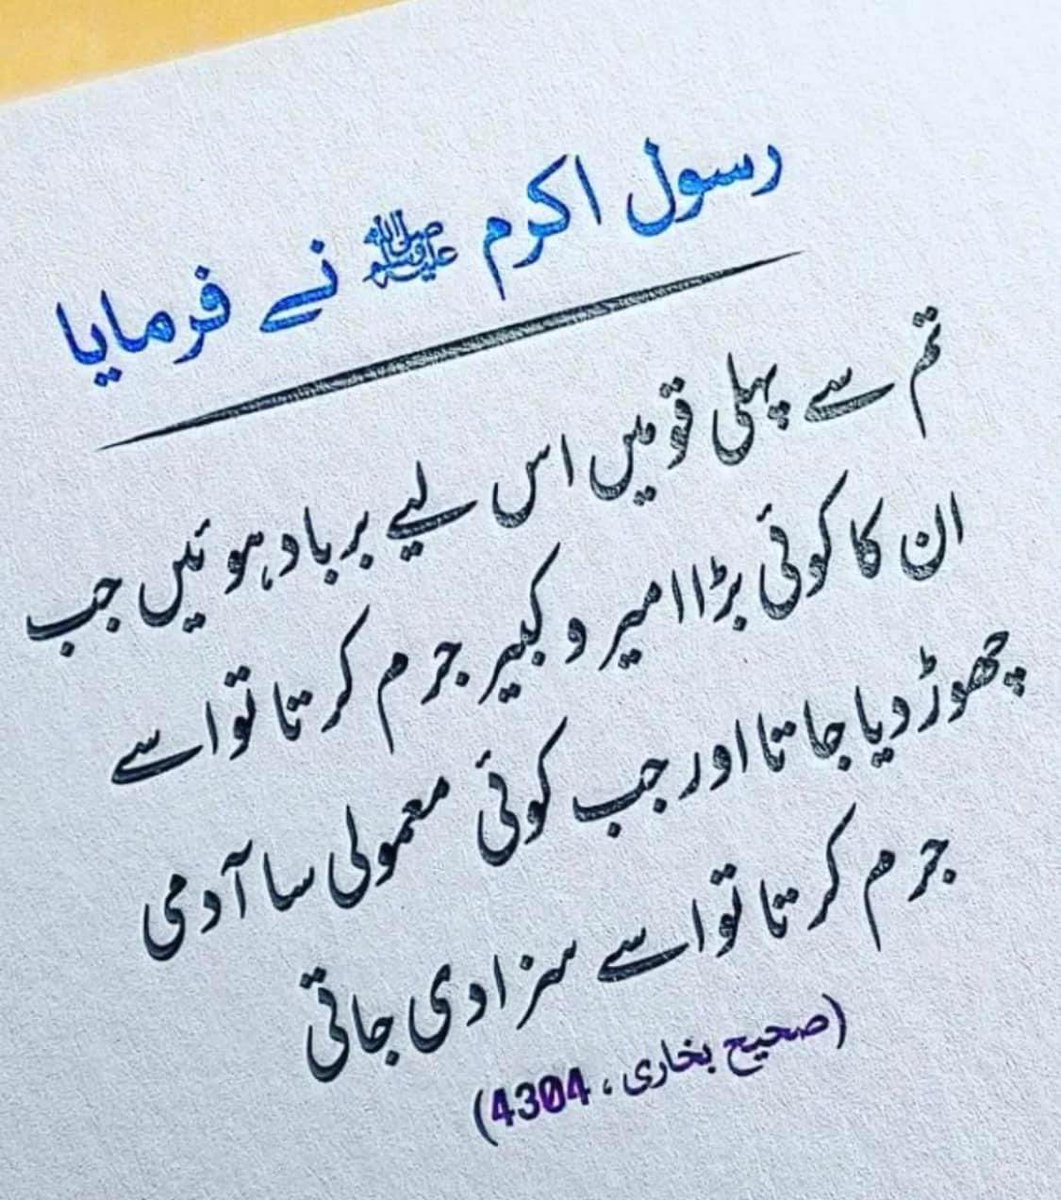 رسول اکرم ﷺ نے فرمایا
تم سے پہلی قومیں اس لیے برباد ہوئیں جب
ان کا کوئی بڑا امیر و کبیر جرم کرتا تو اسے
چھوڑ دیا جاتا اور جب کوئی معمولی سا آدمی
جرم کرتا تو اسے سزا دی جاتی
(صحیح بخاری ، 4304)